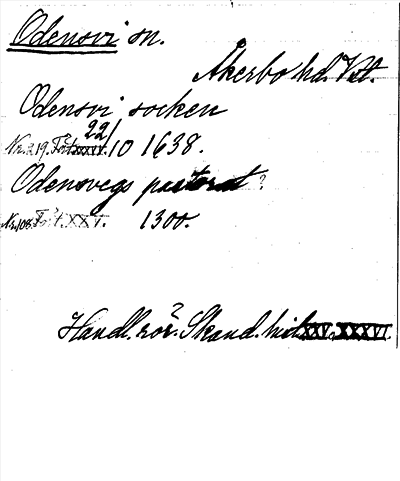 Odensvi sn.
Åkerbo hd. Vstl.
Odensvi socken
22/10 1638.
Odensvegs pastorat?
Nr. 108. XXV. 1300.
Handl. rör. Skand. hist. XXV. XXXVI.